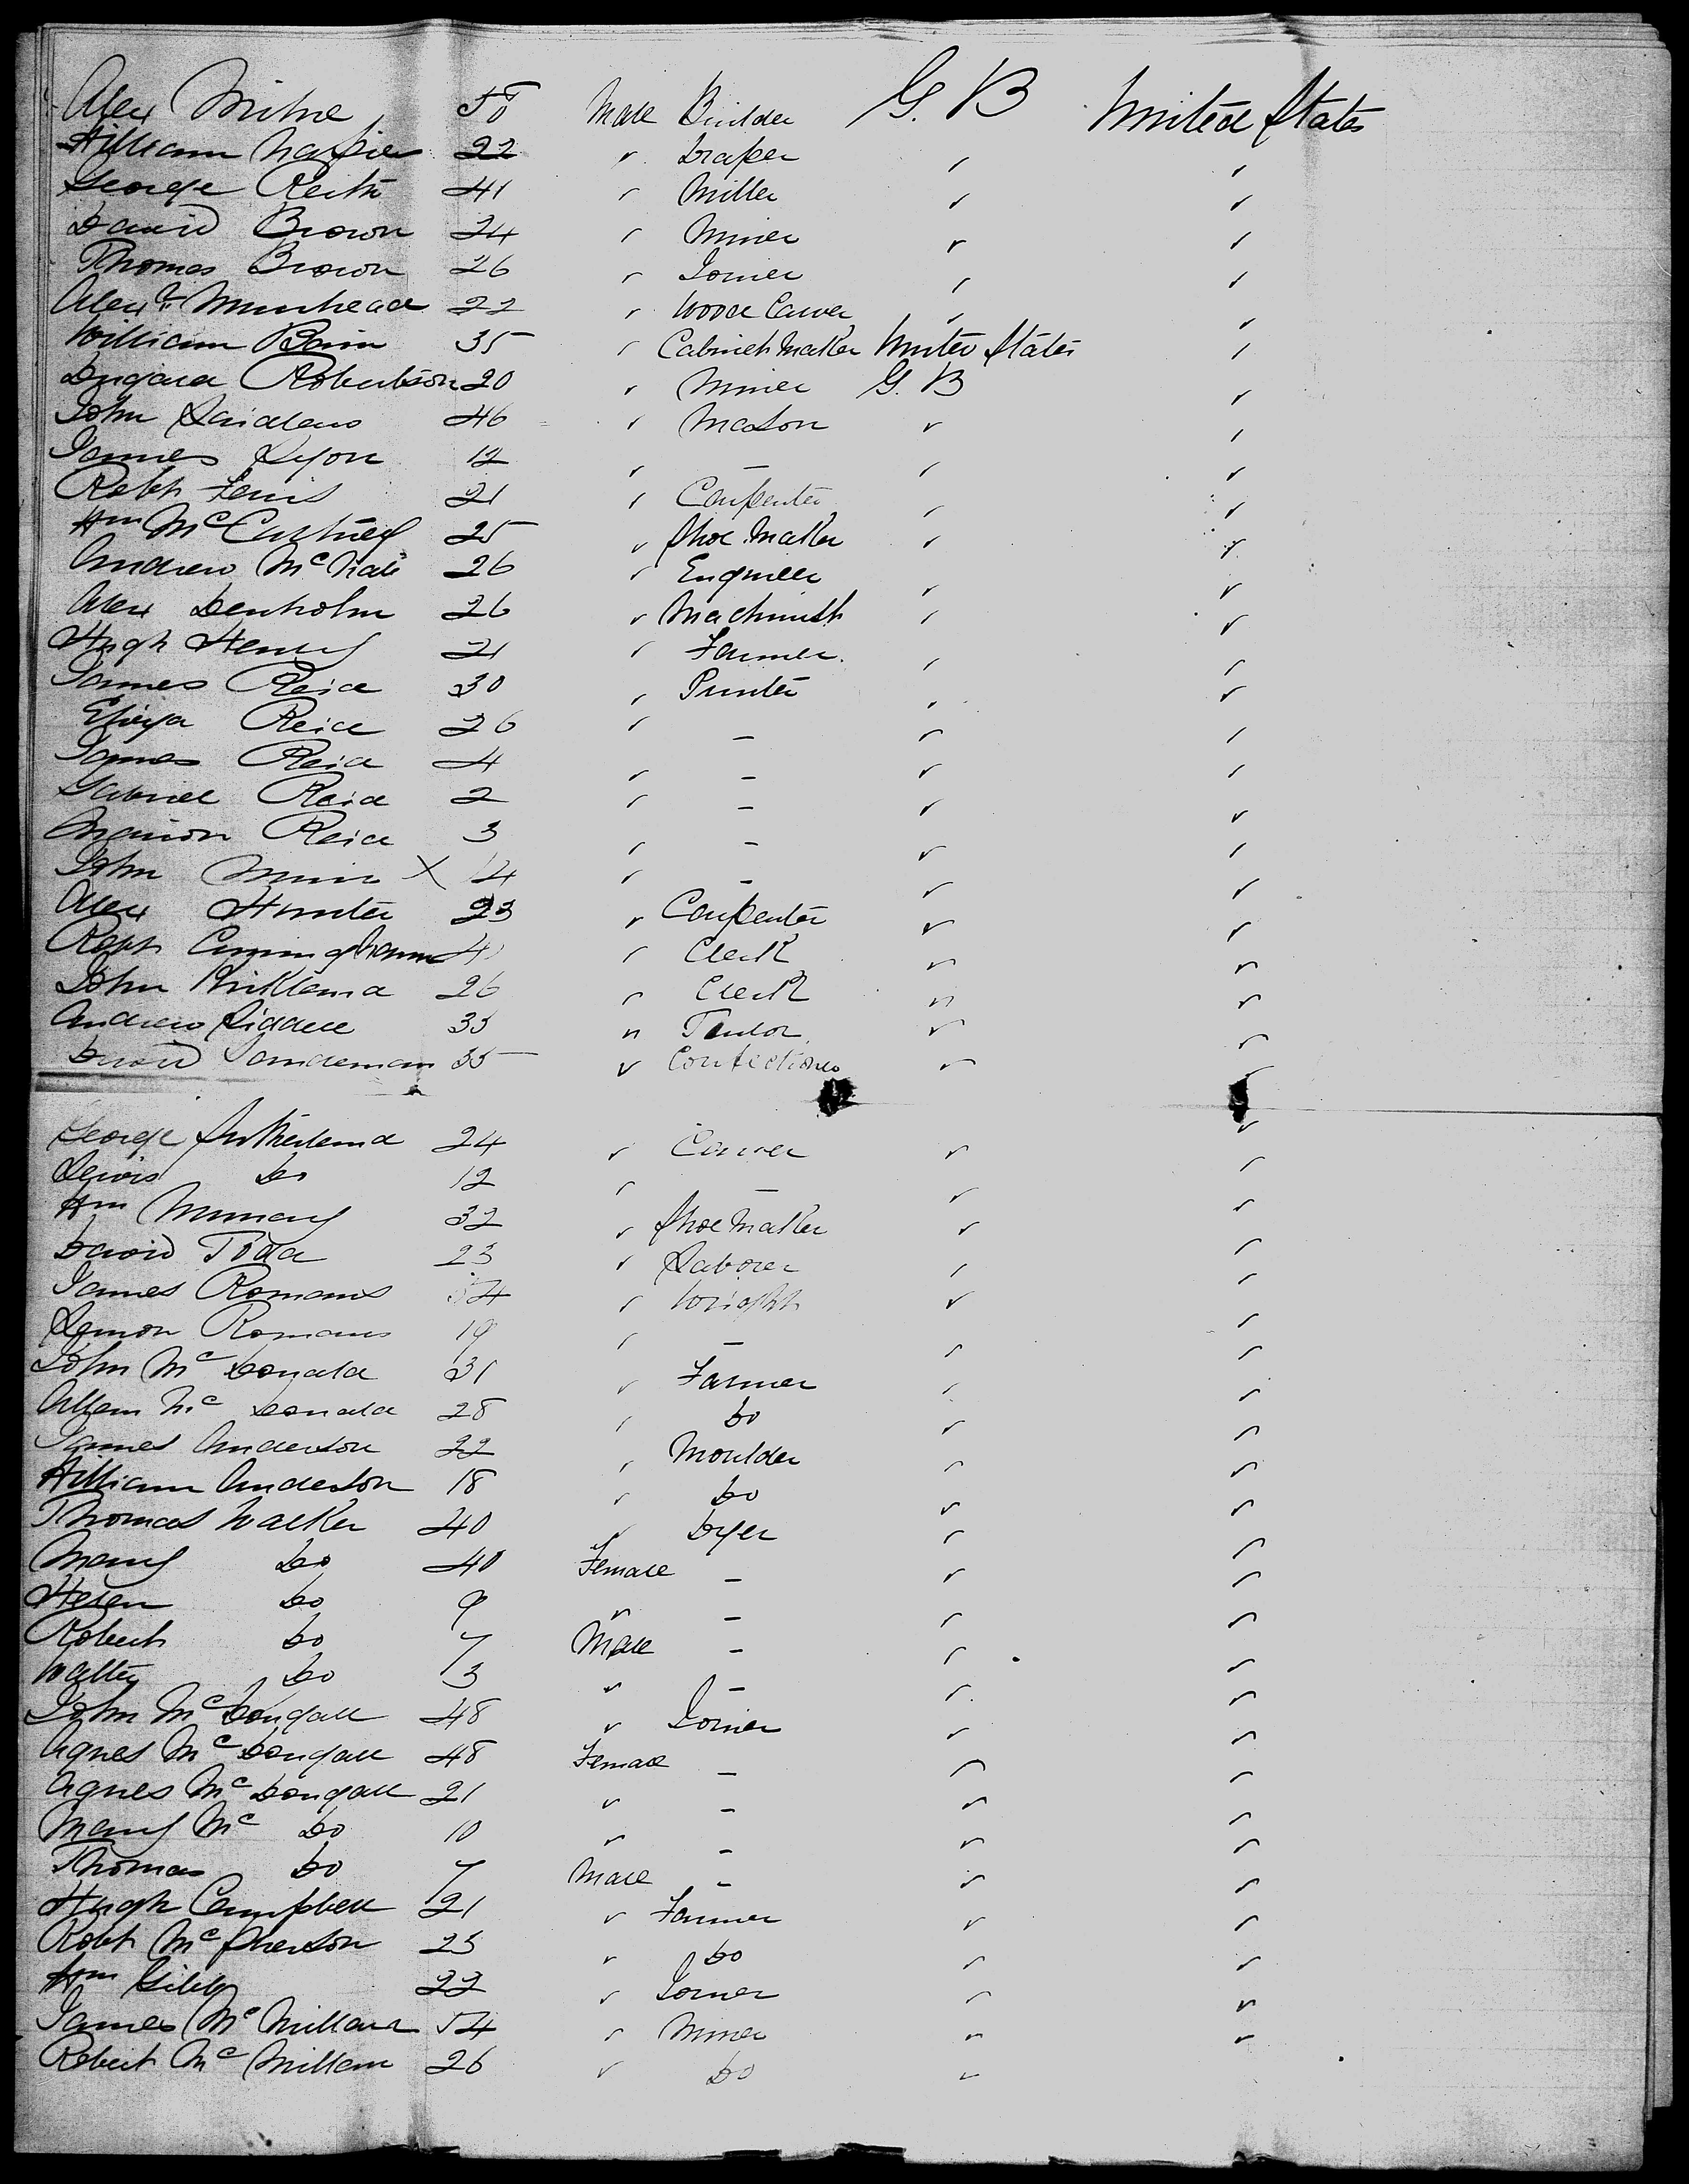 Alex Milne 50 Male Builder G. B United States
William Napier 22 " Draper " "
George Keith 41 " Miller " "
David Brown 24 " Miner " "
Thomas Brown 26 " Joiner " "
Alexr Muirhead 22 " Wood Carver " "
William Bain 35 " Cabinet Maker United States "
Dugald Robertson 20 " Miner G. B "
John 46 " Mason " "
James Lyon 12 " - " "
Robt Lewis 21 " Carpenter " "
Wm McCartney 25 " Shoe Maker " "
Andrew McNair 26 " Engineer " "
Alex Denholm 26 " Machinist " "
Hugh Henry 21 " Farmer " "
James Reid 30 " Printer " "
Eliza Reid 26 " - " "
James Reid 4 " - " "
Gabriel Reid 2 " - " "
Marion Reid 3 " - " "
John X 14 " - " "
Alex Hunter 23 " Carpenter " "
Robt Cunningham 4 " Clerk " "
John Kirkland 26 " Clerk " "
Andrew Liddell 33 " Tailor " "
David Sandeman 35 " Confectioner "
George Sutherland 24 " Carver " "
Lewis Do 12 " - " "
Wm Murray 32 " Shoe Maker " "
David Todd 23 " Laborer " "
James Romans 54 " Wright " "
Romans 19 " - " "
John McDonald 31 " Farmer " "
Allan McDonald 28 " Do " "
James Anderson 22 " Moulder " "
William Anderson 18 " Do " "
Thomas Walker 40 " Dyer " "
Mary Do 40 Female - " "
Helen Do 9 " - " "
Robert Do 7 Male - " "
Walter Do 3 " - " "
John McDougall 48 " Joiner " "
Agnes McDougall 48 Female - " "
Agnes McDougall 21 " - " "
Mary Mc Do 10 " - " "
Thomas Do 7 Male - " "
Hugh Campbell 21 " Farmer " "
Robt McPherson 23 " Do " "
Wm Gibb 22 " Joiner " "
James McMillan 54 " Miner " "
Robert McMillan 26 " Do "